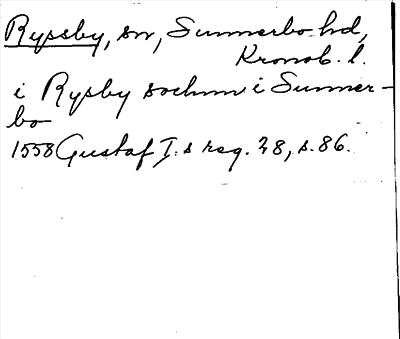 Ryssby, sn, Sunnerbo hd,
Kronob. l.
i Rysby sochnn i Sunner-
bo
1558 Gustaf I:s reg. 28, s. 86.